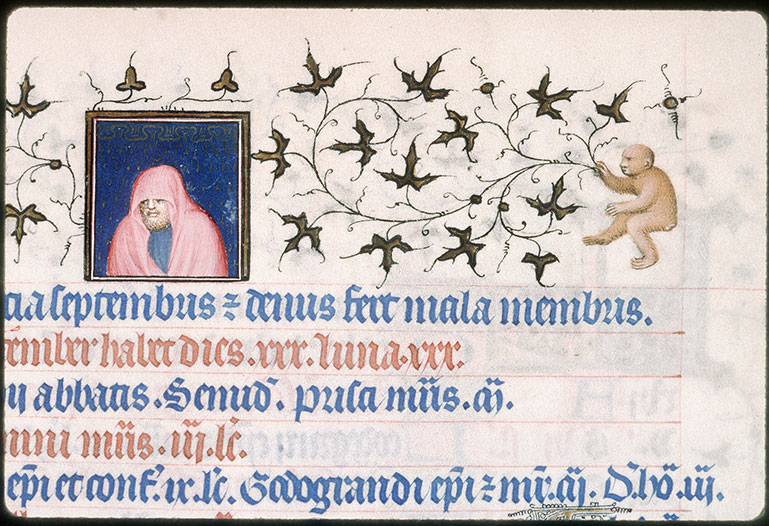 cia septembus ⁊ denus fert mala membus.
tember habet dies .xxx. luna .xxx.
ii abbatis. Senud̄. prisci m̄is. cij.
nini m̄is. iij. lc̄.
ep̄i et conf̄. ix. lc̄. Godograndi ep̄i ⁊ mr̄. cij. D. hō. iij.